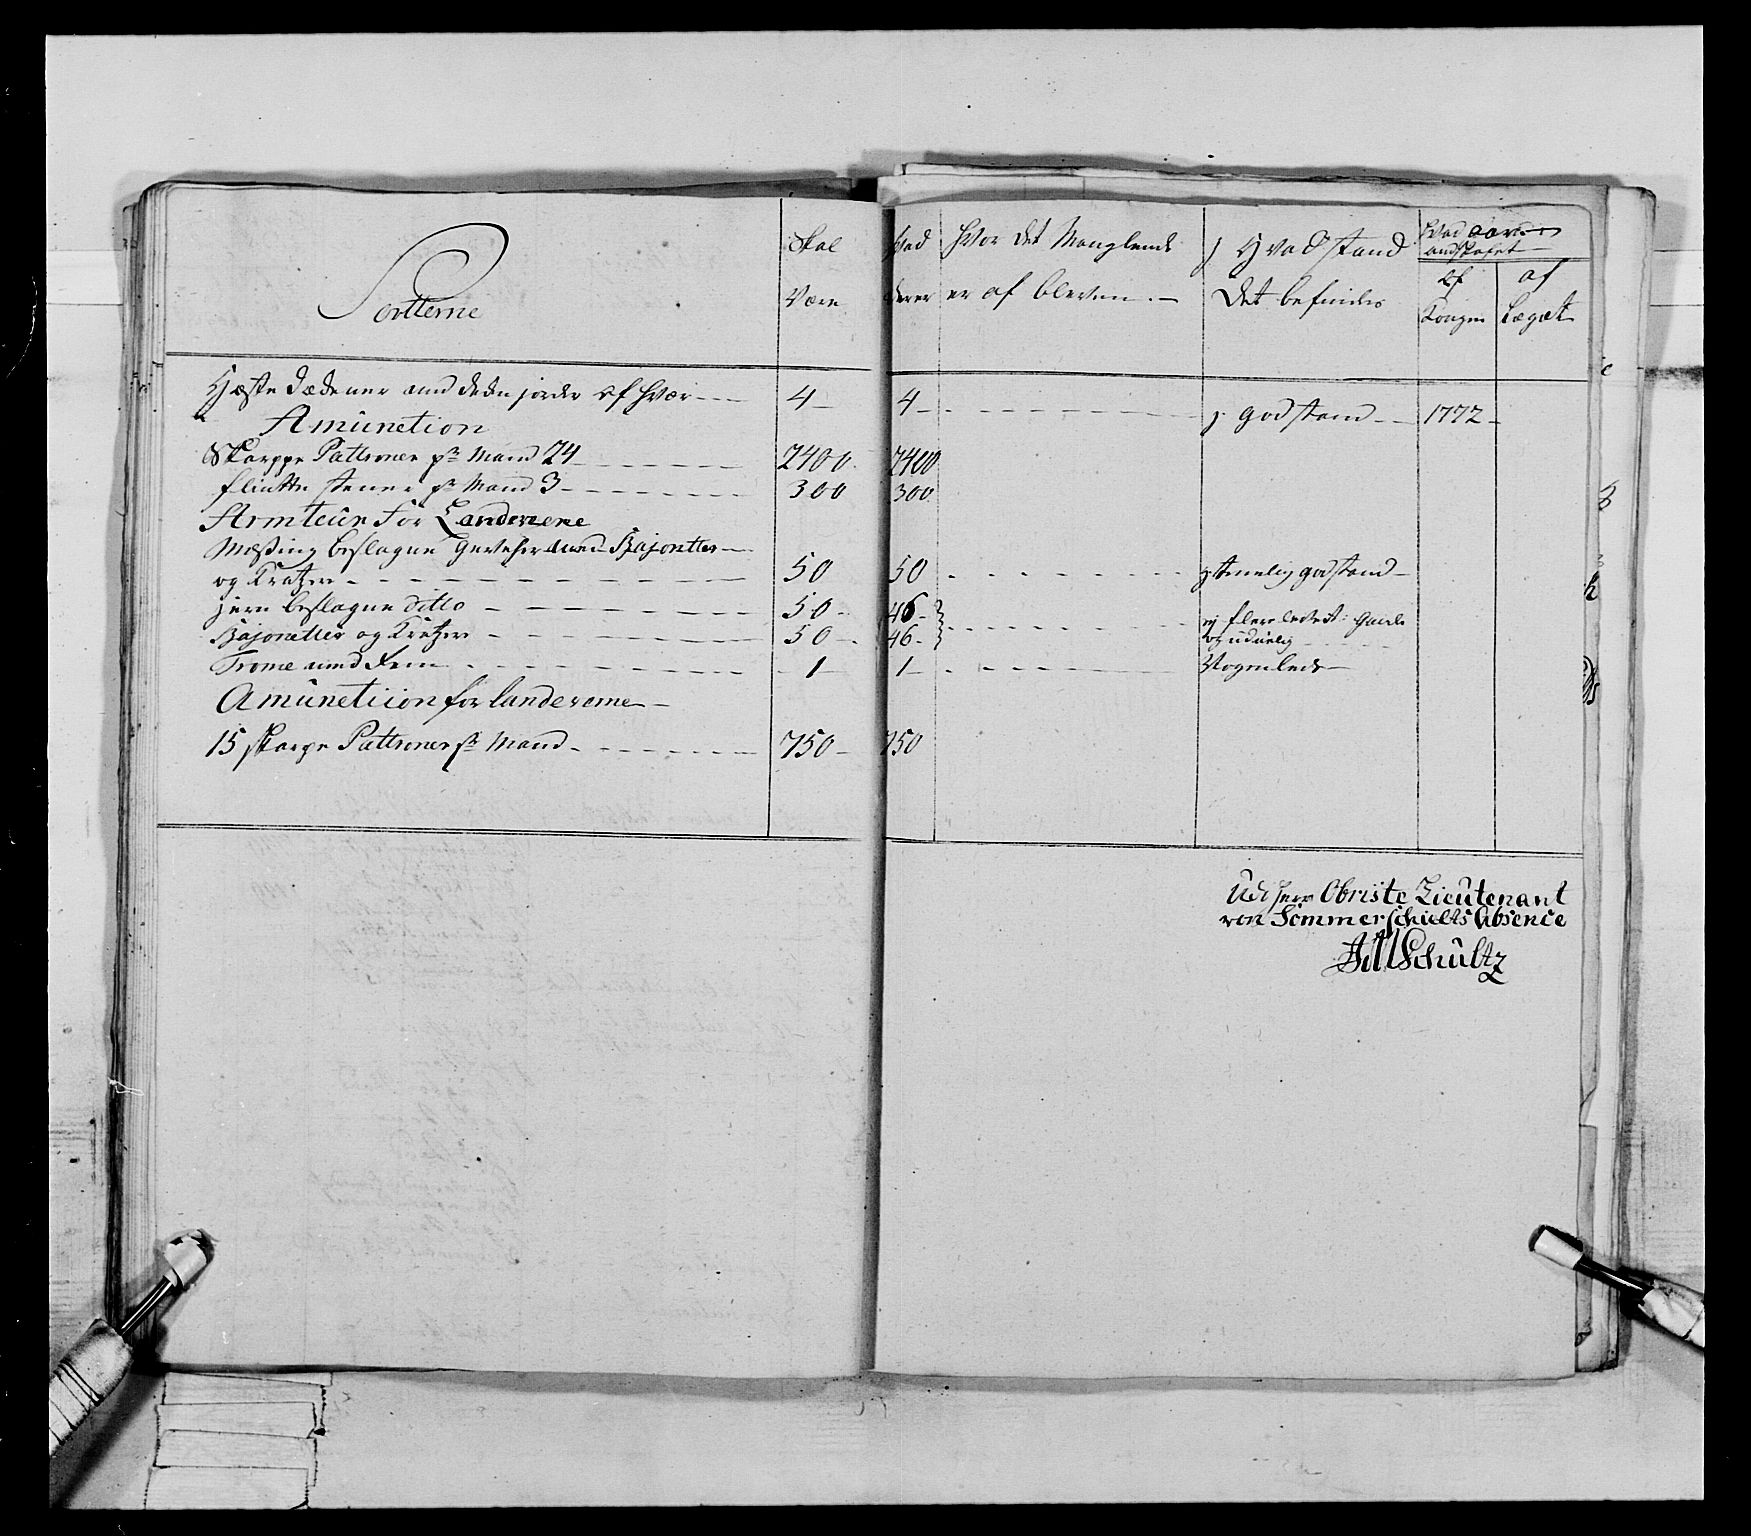 Sortterne
Skal
Være
hvad
derer
Hvor det Manglende
er af bleven. —
J Hvad stand
det befindes
Hvad aar
andskafet
af
Kongen
af
Læget
Hæste dækener med af hver — 4 — 4 — J god stand — 1772 —
Amunetion
Skarppe Pattroner pr Mand 24 — 2400. 2400
flintte stener pr Mand 3 — 300 300
Armteur for Landerne
Meßing beslagne Geveher med Bajonetter —
og Kratzer — 50 50 — J temelig god stand —
jern beslagne ditto — 50 — 46 —
Bajonetter og Kratzer — 50 — 46 — og uduelig
Trome med — 1 — 1 —
Amunetiion for landverne —
15 skarpe Pattroner pr Mand — 750 — 750
Udi herr Obriste Lieutenant
von Sommerschields Absence
Schultz